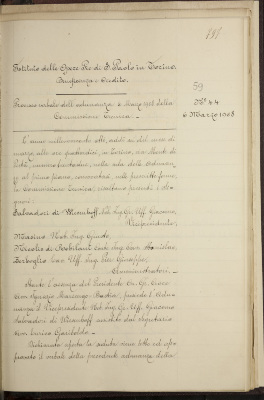 188
Istituto delle Opere Pie di S. Paolo in Torino.
Beneficenza e Credito.
59
Processo verbale dell'adunanza 6 Marzo 1908 della
Commissione
N° 44
6 Marzo 1908
L'anno millenovecento otto, addì sei del mese di
marzo alle ore quindici, in Torino, Via Monte di
Pietà, numero trentadue, nella sala delle adunanze
al primo piano, convocatasi nelle prescritte forme
la Commissione risultano presenti i Signori:
Salvadori di Wiesenhoff Nob. Ing. Gr. Uff. Giacomo,
Vicepresidente,
Masino Not. Ing.
di Robilant Conte Ing. Cav. Stanislao,
Cav. Uff. Ing. Giuseppe,
Amministratori. —
Stante l'assenza del Presidente Gr. Cr. Civ.
Avv. Ignazio Marsengo Bastia, presiede l'adunanza
il Vicepresidente Nob. Ing. Gr. Uff. Giacomo
Salvadori di Wiesenhoff assistito dal Segretario
Avv. Enrico Garibaldo. —
Dichiarata aperta la seduta viene letto ed approvato
il verbale della precedente adunanza della